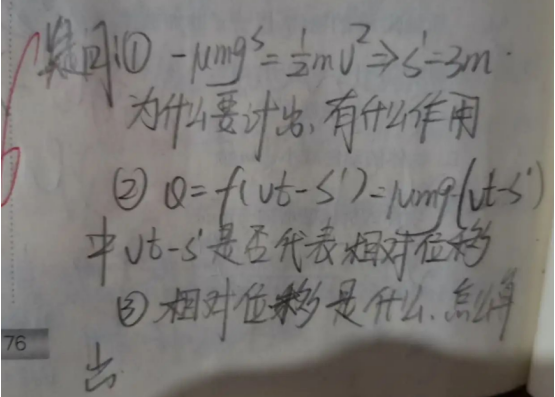 疑问:① -μmgs'=½mv²⇒s'=3m.
为什么要计出、有什么作用
② Q=f(vt-s')=μmg·(vt-s')
中vt-s'是否代表相对位移
③ 相对位移是什么、怎么算
76
出